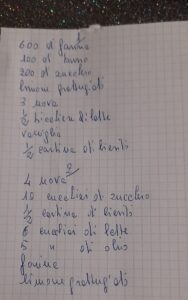 1
600 di farina
100 di burro
200 di zucchero
limone grattugiato
3 uova
1/2 bicchiere di latte
vaniglia
1/2 cartina di lievito
2
4 uova
10 cucchiai di zucchero
1/2 cartina di lievito
6 cucchiai di latte
5 " di olio
farina
limone grattugiato